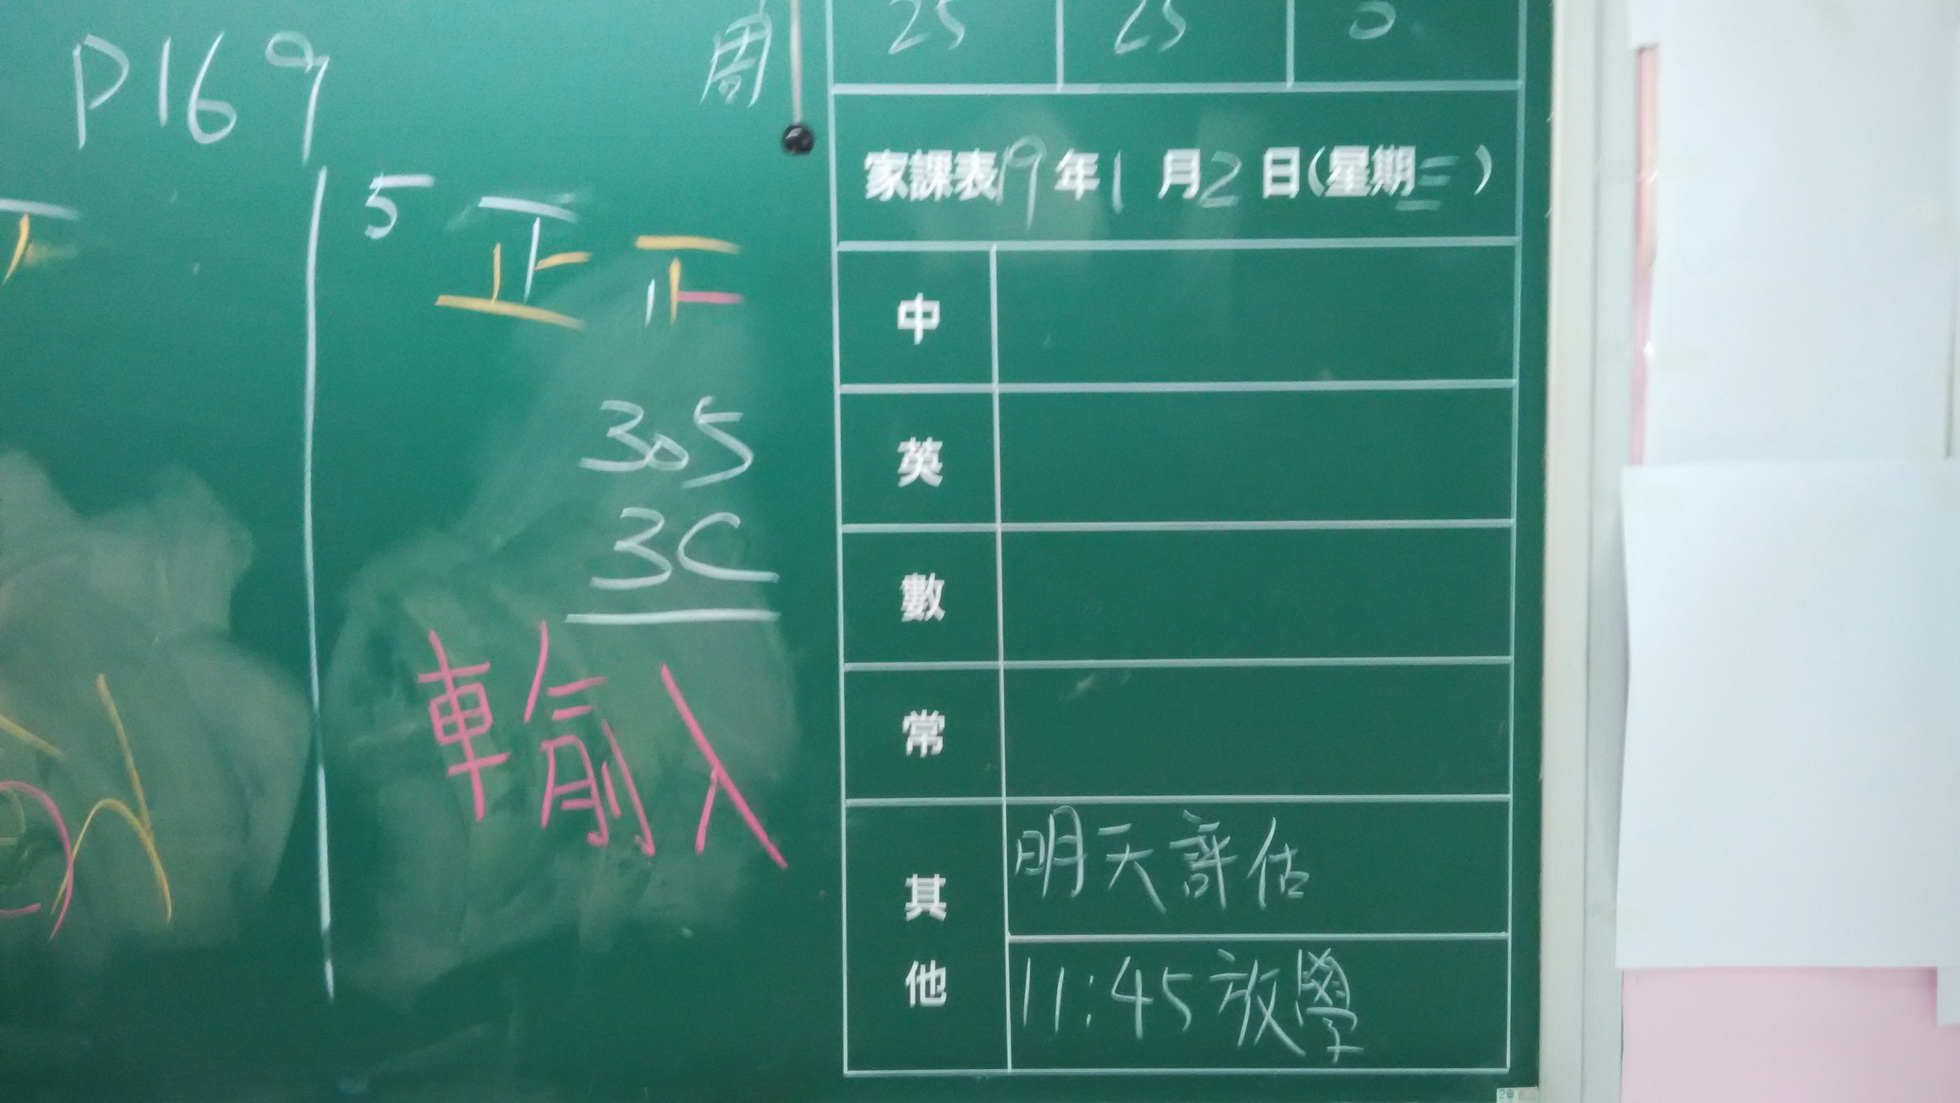 P169
周
25 25 0
家課表19年1月2日(星期三)
5 正
305
3C
輸入
中
英
數
常
其他
明天評估
11:45放學